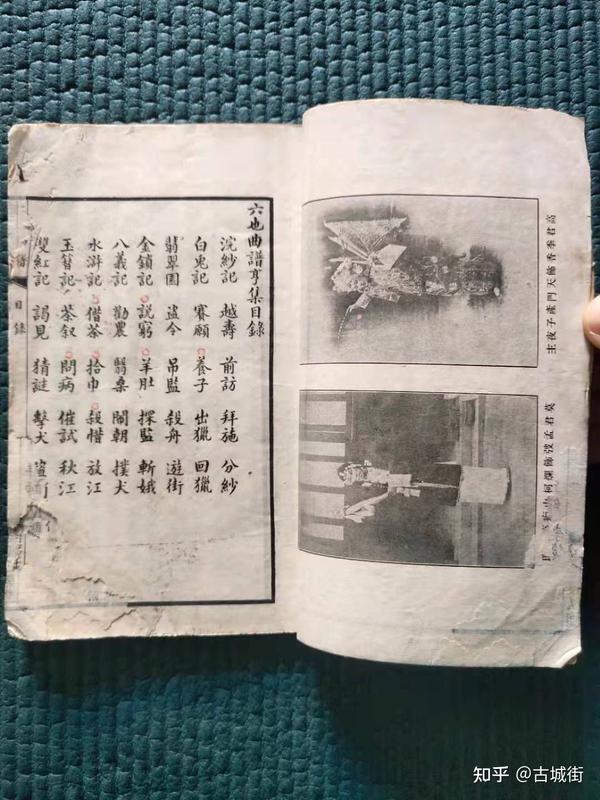 高君季香飾天門產子夜主
莫君孟弢飾爛柯山
六也曲譜亨集目錄
浣紗記 越壽 前訪 拜施 分紗
白兎記 賽願 養子 出獵 回獵
翡翠園 盜令 吊監 殺舟 遊街
金鎖記 說窮 羊肚 探監 斬娥
八義記 勸農 翳桑 鬧朝 撲犬
水滸記 借茶 拾巾 殺惜 放江
玉簪記 茶叙 問病 催試 秋江
雙紅記 謁見 猜謎 擊犬
目錄
知乎 @古城街